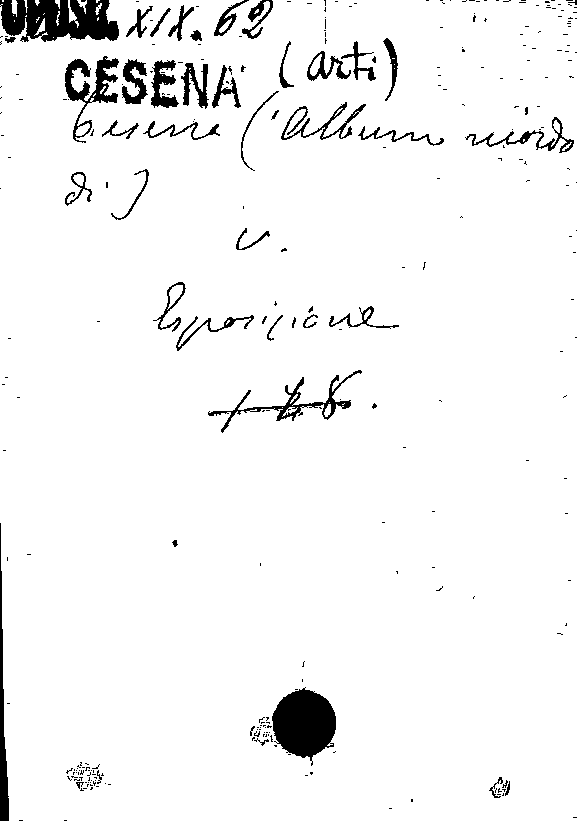 OPUSC. XIX. 62
CESENA (arti)
Cesena (Album ricordo
di)
v.
Esposizione